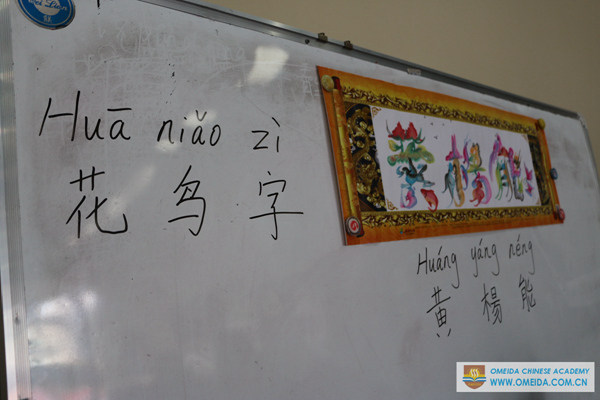 Huā niǎo zì
花 鸟 字
黄 楊 能
Huáng yáng néng
黄 楊 能
OMEIDA CHINESE ACADEMY
WWW.OMEIDA.COM.CN